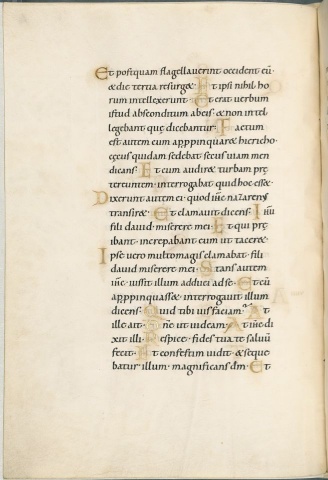 Et postquam flagellauerint occident eū
& die tertia resurg&. Et ipsi nihil ho
rum intellexerunt. Et erat uerbum
istud absconditum ab eis. & non intel
legebant quę dicebantur. Factum
est autem cum appropinquar& hiericho.
cęcus quidam sedebat secus uiam men
dicans. Et cum audir& turbam prę
tereuntem. interrogabat quid hoc ess&.
Dixerunt autem ei. quod ihc nazarenus
transir&. Et clamauit dicens. Ihū
fili dauid miserere mei. Et qui prę
ibant. increpabant eum ut tacer&.
Ipse uero multo magis clamabat. fili
dauid miserere mei. Stans autem
ihc. iussit illum adduci ad se. Et cū
appropinquass&. interrogauit illum
dicens. Quid tibi uis faciam. At
ille ait. Dne ut uideam. At ihc di
xit illi. Respice. fides tua te saluū
fecit. Et confestim uidit. & seque
batur illum. magnificans dm. Et